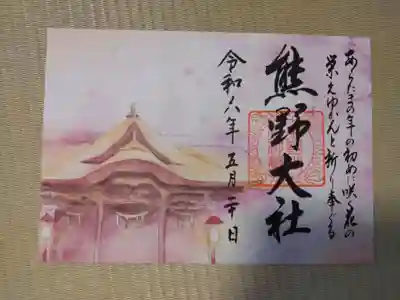 あらたまの年の初めに咲く花の
栄えゆかんと祈り奉る
熊野大社
令和六年五月二十日